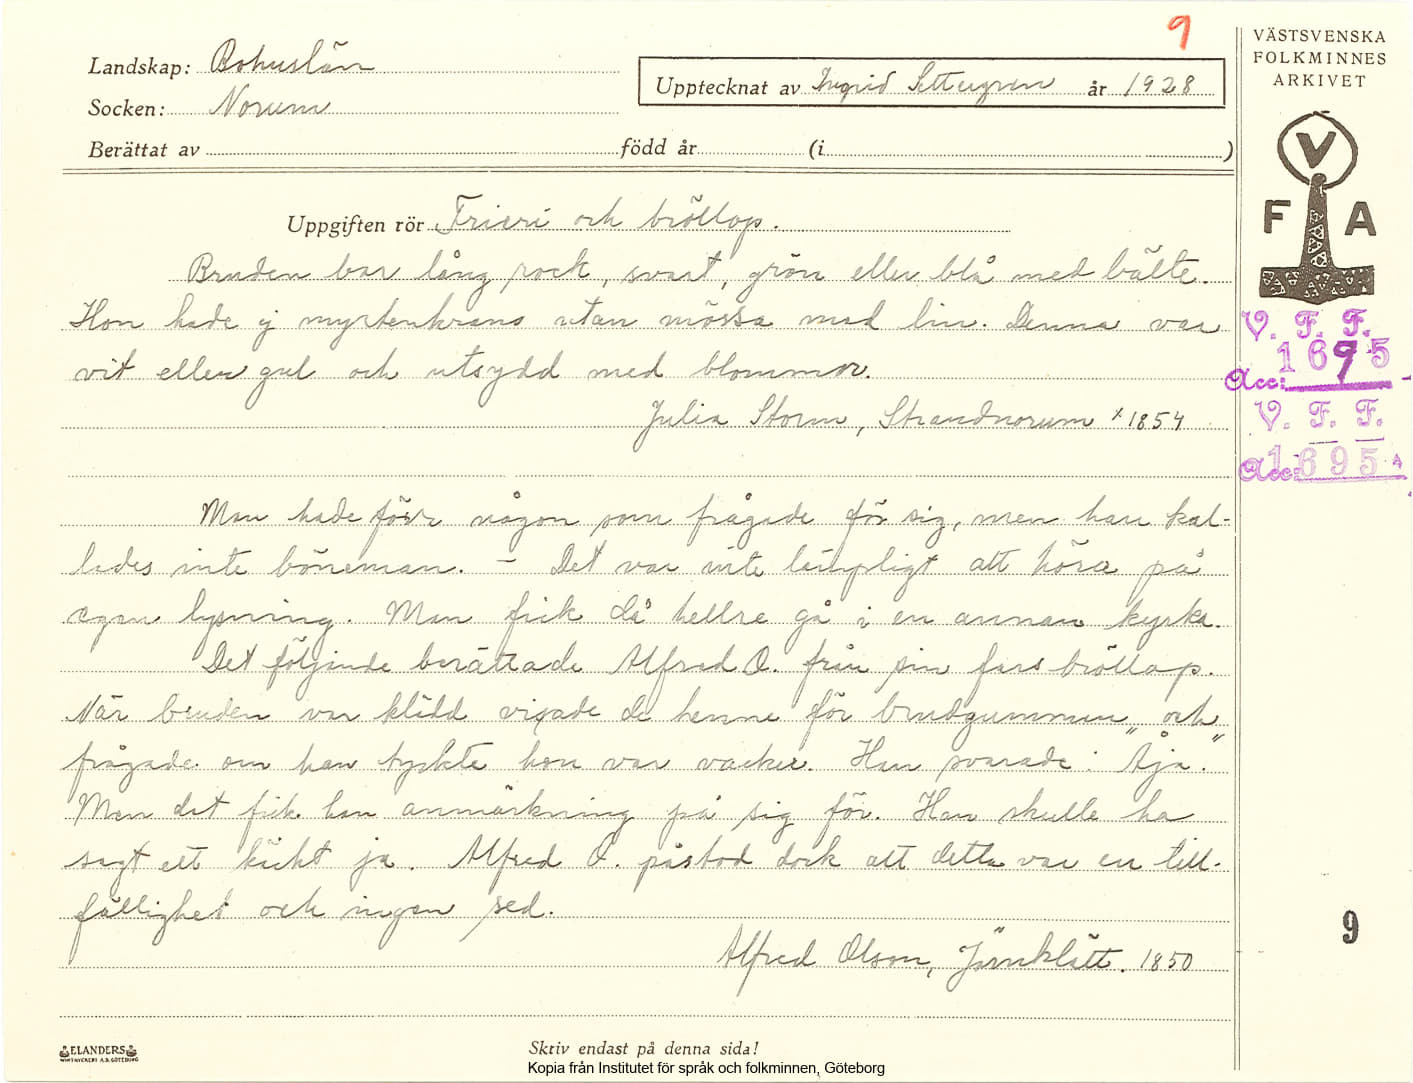 9
VÄSTSVENSKA
FOLKMINNES
ARKIVET
Landskap: Bohuslän
Upptecknat av Ingrid Settergren år 1928
Socken: Norum
Berättat av född år (i )
V
F A
Uppgiften rör Frieri och bröllop.
Bruden bar lång rock, svart, grön eller blå med bälte.
Hon hade ej myrtenkrans utan mössa med lin. Denna var
vit eller gul och utsydd med blommor.
Julia Storm, Strandnorum * 1854
V. F. F.
Acc: 1695
V. F. F.
Acc: 1695
Man hade förr någon som frågade för sig, men han kal-
lades inte böneman. – Det var inte lämpligt att höra på
egen lysning. Man fick då hellre gå i en annan kyrka.
Det följande berättade Alfred O. från sin fars bröllop.
När bruden var klädd visade de henne för brudgummen och
frågade om han tyckte hon var vacker. Han svarade: "Åja."
Men det fick han anmärkning på sig för. Han skulle ha
sagt ett käckt ja. Alfred O. påstod dock att detta var en till-
fällighet och ingen sed.
9
Alfred Olson, Jörnklätt. 1850
ELANDERS
Skriv endast på denna sida!
Kopia från Institutet för språk och folkminnen, Göteborg